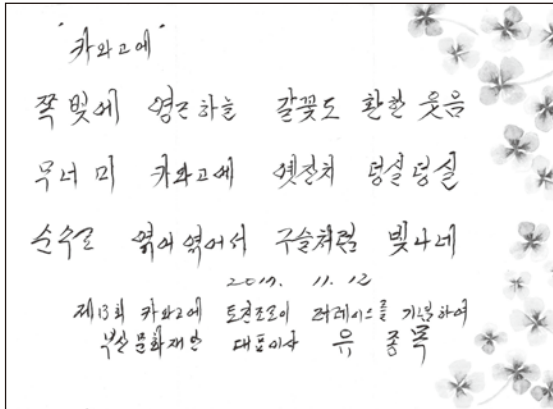 "카와고에"
쪽빛에 영근하늘 갈꽃도 환한 웃음
무너미 카와고에 옛잔치 덩실덩실
순수로 엮어 엮어서 구슬처럼 빛나네
2017. 11. 12
제13회 카와고에 퍼레이드를 기념하여
부산문화재단 대표이사 유 종 목